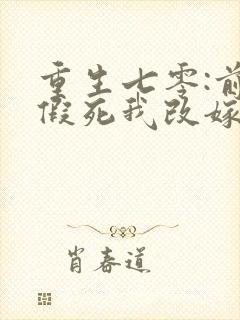 重生七零:前
假死我改嫁
肖春道